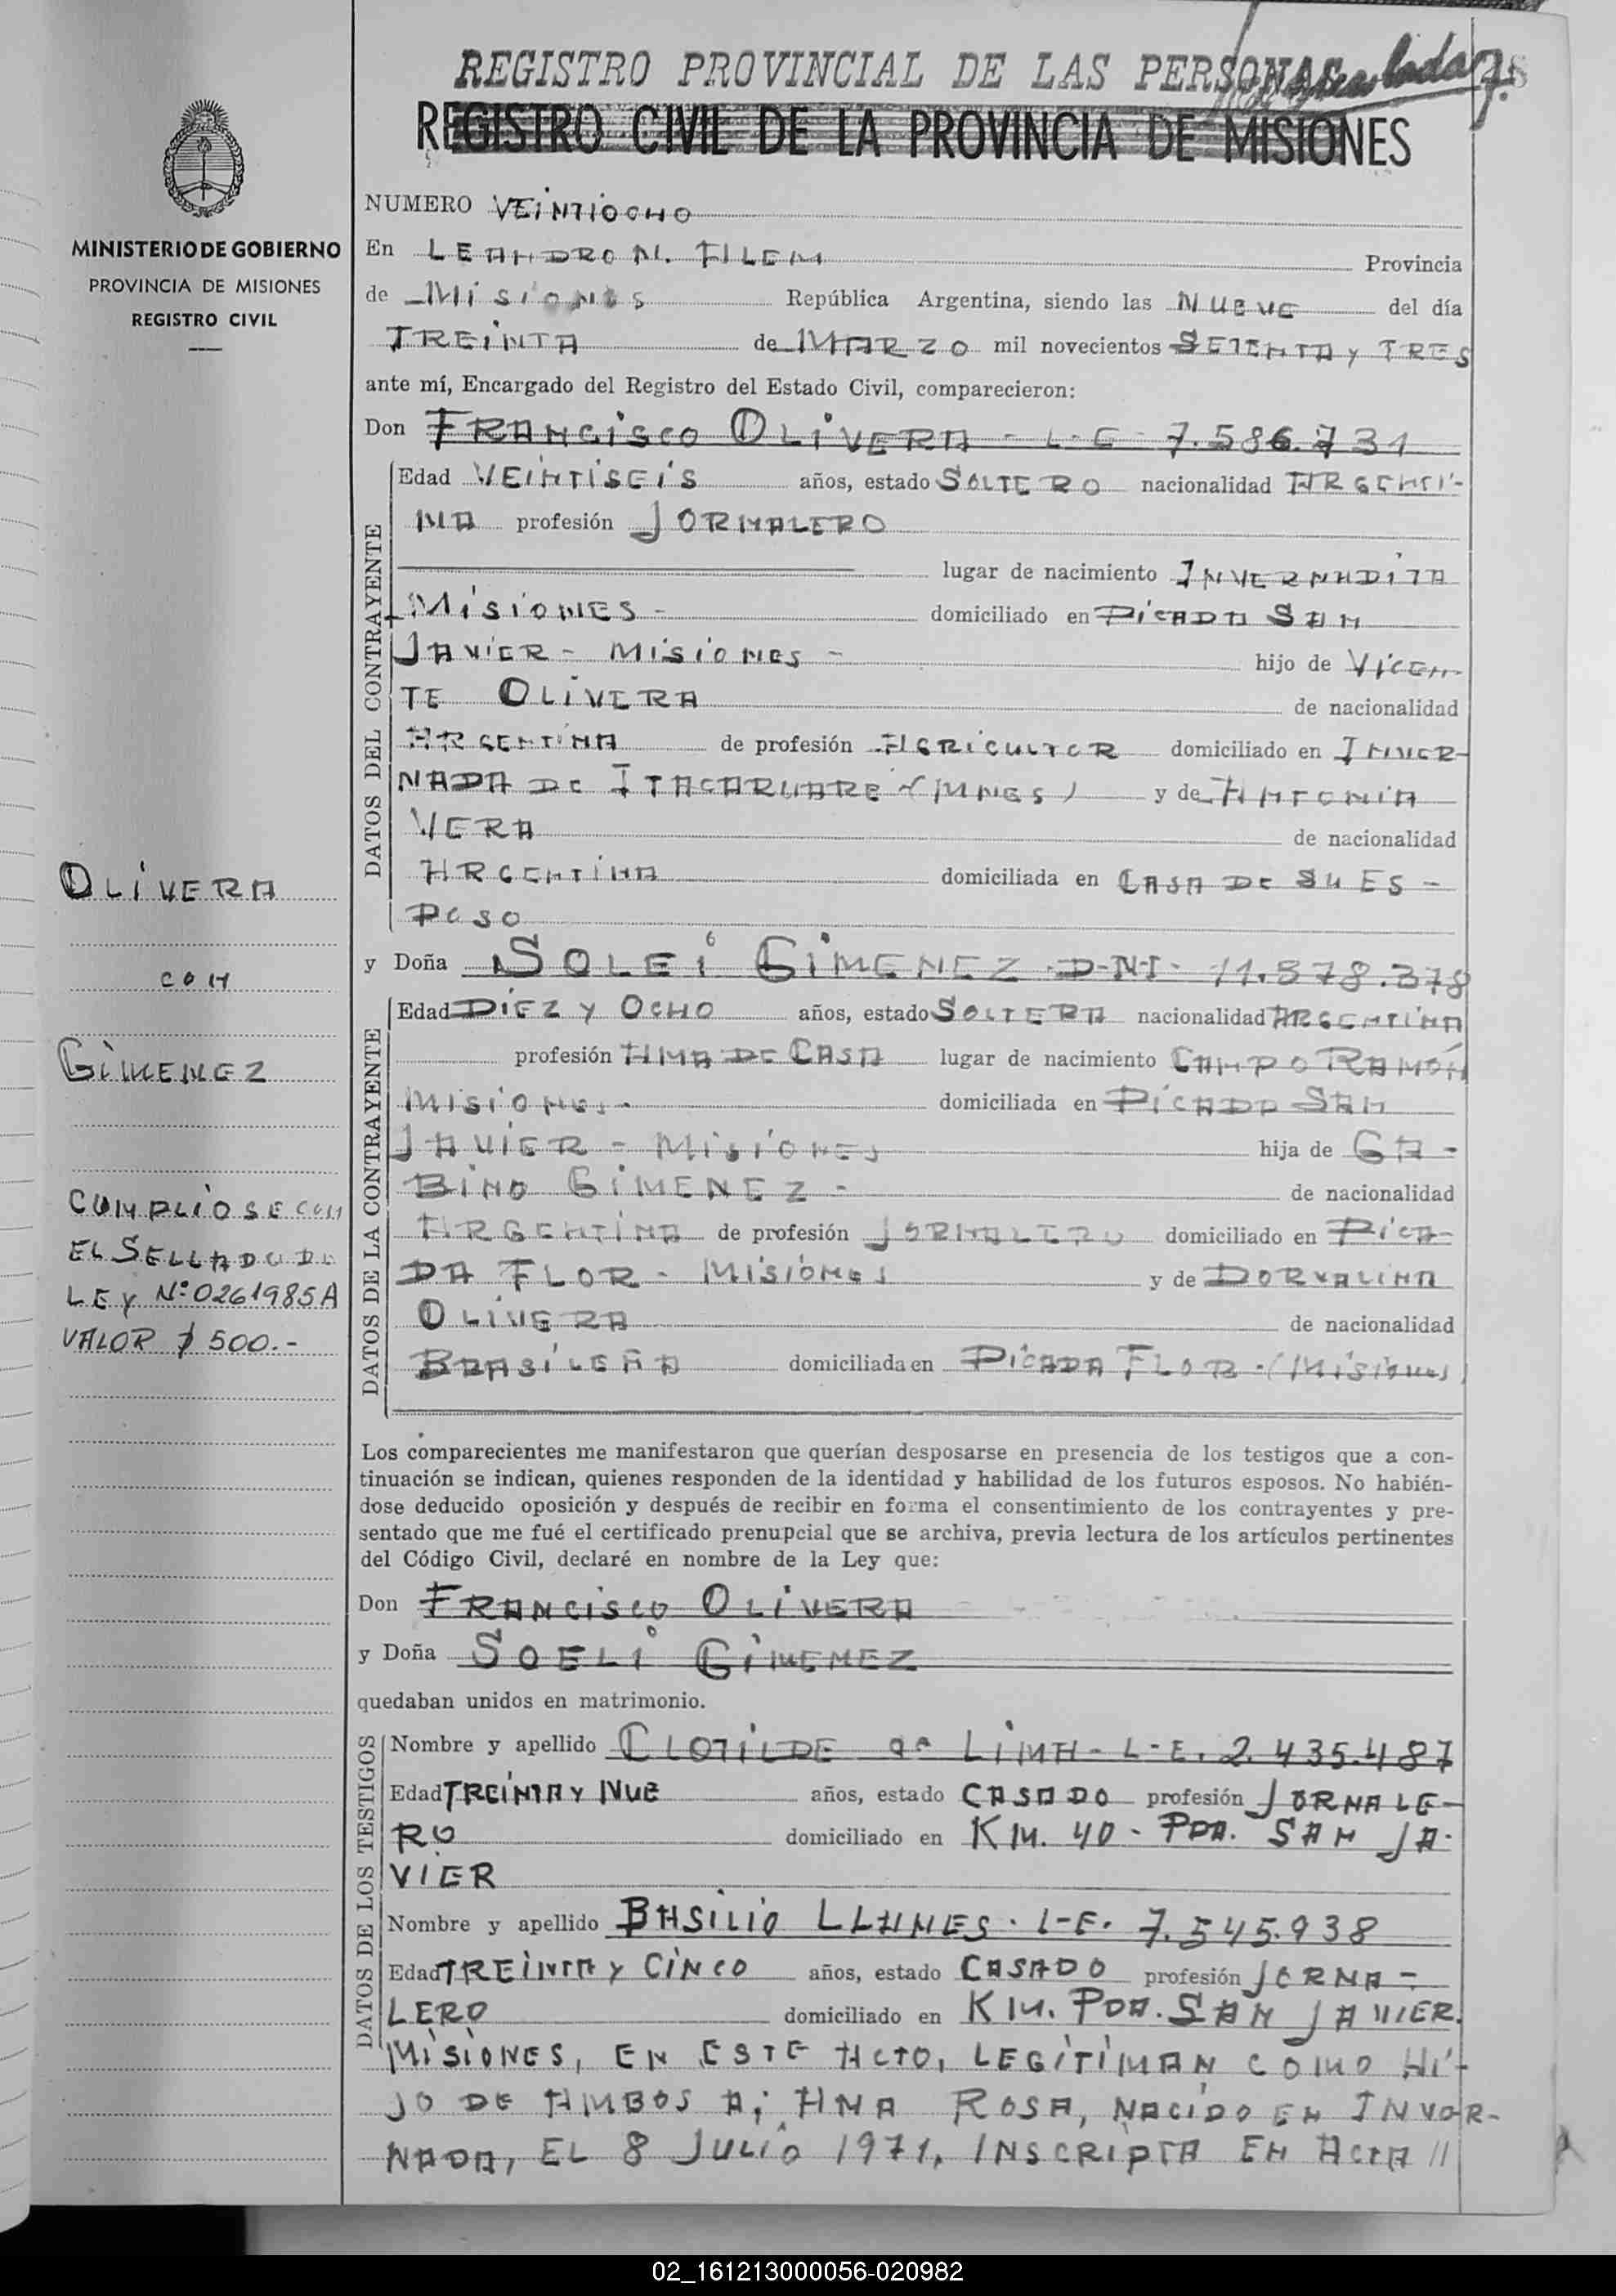 REGISTRO PROVINCIAL DE LAS PERSONAS
REGISTRO CIVIL DE LA PROVINCIA DE MISIONES
MINISTERIO DE GOBIERNO
PROVINCIA DE MISIONES
REGISTRO CIVIL
NUMERO VEINTIOCHO
En LEANDRO N. ALEM Provincia
de MISIONES República Argentina, siendo las NUEVE del día
TREINTA de MARZO mil novecientos SETENTA y TRES
ante mí, Encargado del Registro del Estado Civil, comparecieron:
Don FRANCISCO OLIVERA - L-E- 7.586.731
DATOS DEL CONTRAYENTE
Edad VEINTISEIS años, estado SOLTERO nacionalidad ARGENTI-
NA profesión JORNALERO
lugar de nacimiento INVERNADITA
MISIONES - domiciliado en PICADA SAN
JAVIER - MISIONES - hijo de VICEN-
TE OLIVERA de nacionalidad
ARGENTINA de profesión AGRICULTOR domiciliado en INVER-
NADA DE ITACARUARE (MNES) y de ANTONIA
VERA de nacionalidad
ARGENTINA domiciliada en CASA DE SU ES-
POSO
OLIVERA
CON
GIMENEZ
CUMPLIOSE CON
EL SELLADO DE
LEY Nº 0261985A
VALOR $ 500.-
y Doña SOLEI GIMENEZ D-N-I- 11.578.378
DATOS DE LA CONTRAYENTE
Edad DIEZ Y OCHO años, estado SOLTERA nacionalidad ARGENTINA
profesión AMA DE CASA lugar de nacimiento CAMPO RAMÓN
MISIONES- domiciliada en PICADA SAN
JAVIER - MISIONES hija de GA-
BINO GIMENEZ - de nacionalidad
ARGENTINA de profesión JORNALERO domiciliado en PICA-
DA FLOR - MISIONES y de DORVALINA
OLIVERA de nacionalidad
BRASILEÑA domiciliada en PICADA FLOR-(MISIONES)
Los comparecientes me manifestaron que querían desposarse en presencia de los testigos que a con-
tinuación se indican, quienes responden de la identidad y habilidad de los futuros esposos. No habién-
dose deducido oposición y después de recibir en forma el consentimiento de los contrayentes y pre-
sentado que me fué el certificado prenupcial que se archiva, previa lectura de los artículos pertinentes
del Código Civil, declaré en nombre de la Ley que:
Don FRANCISCO OLIVERA
y Doña SOELI GIMENEZ
quedaban unidos en matrimonio.
DATOS DE LOS TESTIGOS
Nombre y apellido CLOTILDE LIMA - L-E. 2.435.487
Edad TREINTA Y NUE años, estado CASADO profesión JORNALE-
RO domiciliado en KM. 40 - PDA. SAN JA-
VIER
Nombre y apellido BASILIO LLANES. L-E. 7.545.938
Edad TREINTA Y CINCO años, estado CASADO profesión JORNA-
LERO domiciliado en KM. PDA. SAN JAVIER.
MISIONES, EN ESTE ACTO, LEGITIMAN COMO HI-
JO DE AMBOS A; ANA ROSA, NACIDO EN INVER-
NADA, EL 8 JULIO 1971, INSCRIPTA EN ACTA //
02_161213000056-020982